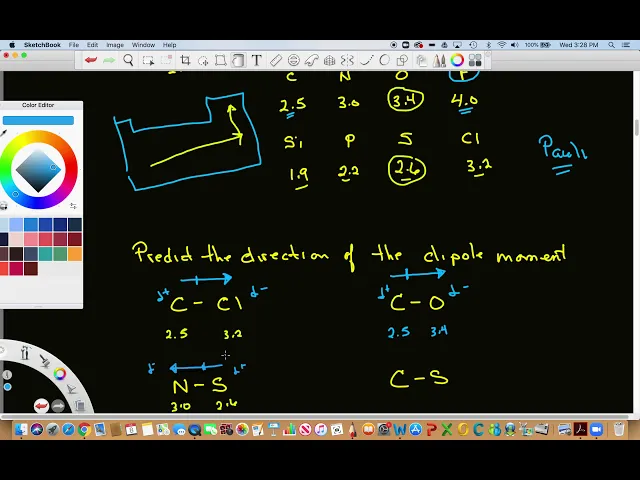 SketchBook File Edit Image Window Help 100% Wed 3:28 PM
Color Editor
C N O F
2.5 3.0 3.4 4.0
Si P S Cl
1.9 2.2 2.6 3.2
Predict the direction of the dipole moment
δ+ C - Cl δ-
2.5 3.2
δ+ C - O δ-
2.5 3.4
δ- δ+
N - S
3.0 2.6
C - S